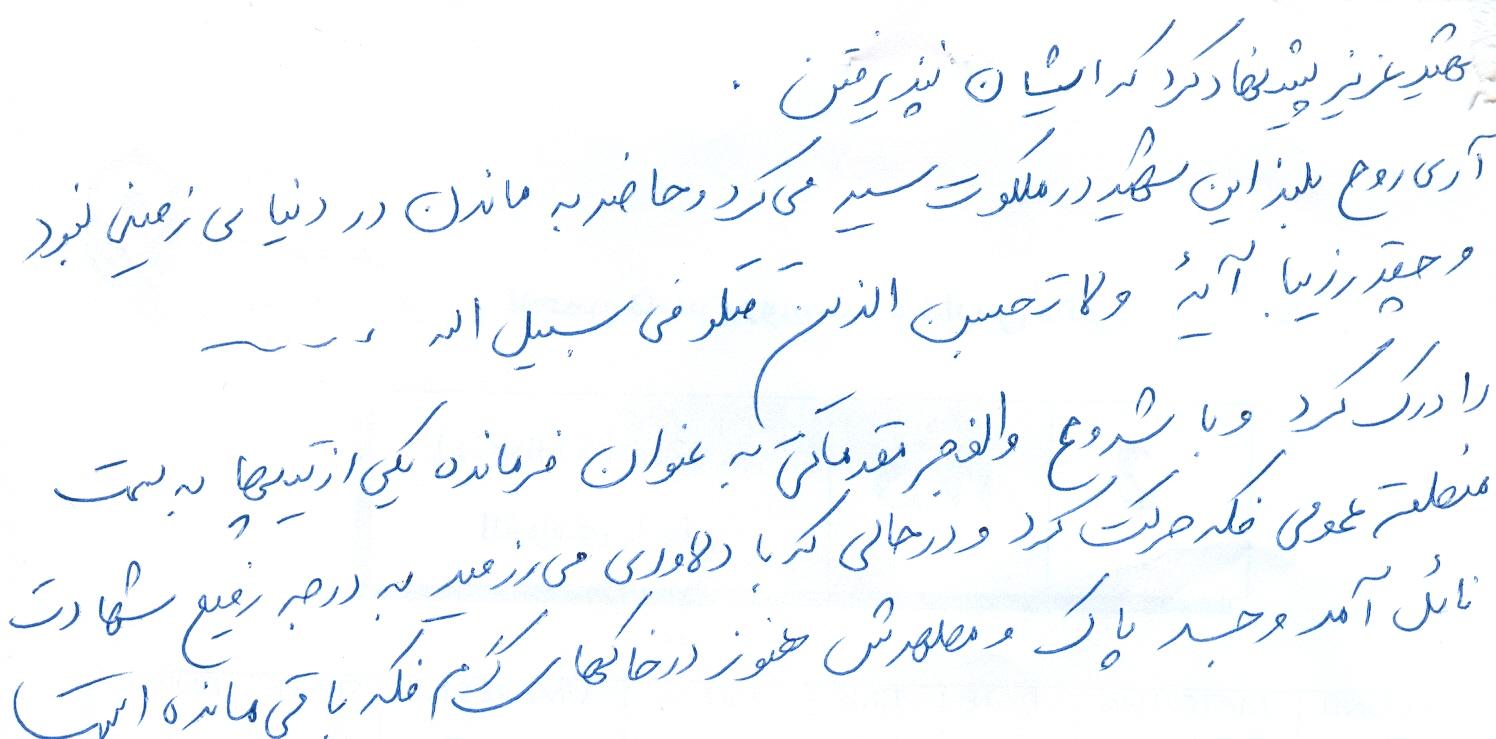 شهید عزیز پیشنهاد کرد که ایشان نپذیرفتن .
آری روح بلند این شهید در ملکوت سیر می کرد و حاضر به ماندن در دنیا ی زمینی نبود
و چقدر زیبا آیهٔ ولا تحسبن الذین قتلو فی سبیل الله ....
را درک کرد و با شروع والفجر مقدماتی به عنوان فرمانده یکی از تیپها به سمت
منطقه عمومی فکه حرکت کرد و در حالی که با دلاوری می رزمید به درجه رفیع شهادت
نائل آمد و جسد پاک و مطهرش هنوز در خاکهای گرم فکه باقی مانده است